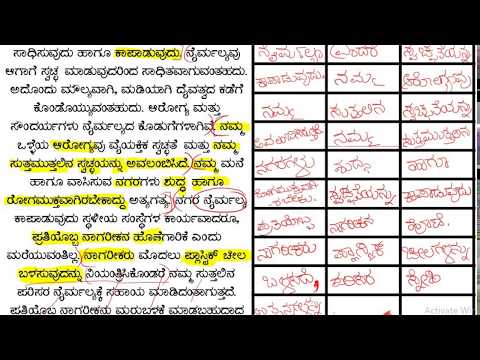 ಸಾಧಿಸುವುದು ಹಾಗೂ ಕಾಪಾಡುವುದು. ನೈರ್ಮಲ್ಯವು
ಆಗಾಗೆ ಸ್ವಚ್ಛ ಮಾಡುವುದರಿಂದ ಸಾಧಿತವಾಗುವಂತಹದು.
ಅದೊಂದು ಮೌಲ್ಯವಾಗಿ, ಮಡಿಯಾಗಿ ದೈವತ್ವದ ಕಡೆಗೆ
ಕೊಂಡೊಯ್ಯುವಂತಹುದು. ಆರೋಗ್ಯ ಮತ್ತು
ಸೌಂದರ್ಯಗಳು ನೈರ್ಮಲ್ಯದ ಕೊಡುಗೆಗಳಾಗಿವೆ. ನಮ್ಮ
ಒಳ್ಳೆಯ ಆರೋಗ್ಯವು ವೈಯಕ್ತಿಕ ಸ್ವಚ್ಛತೆ ಮತ್ತು ನಮ್ಮ
ಸುತ್ತಮುತ್ತಲಿನ ಸ್ವಚ್ಛಯನ್ನು ಅವಲಂಬಿಸಿದೆ. ನಮ್ಮ ಮನೆ
ಹಾಗೂ ವಾಸಿಸುವ ನಗರಗಳು ಶುದ್ಧ ಹಾಗೂ
ರೋಗಮುಕ್ತವಾಗಿರಬೇಕಾದ್ದು ಅತ್ಯಗತ್ಯ. ನಗರ ನೈರ್ಮಲ್ಯ
ಕಾಪಾಡುವುದು ಸ್ಥಳೀಯ ಸಂಸ್ಥೆಗಳ ಕಾರ್ಯವಾದರೂ,
ಪ್ರತಿಯೊಬ್ಬ ನಾಗರೀಕನ ಹೊಣೆಗಾರಿಕೆ ಎಂದು
ಮರೆಯುವಂತಿಲ್ಲ. ನಾಗರೀಕರು ಮೊದಲು ಪ್ಲಾಸ್ಟಿಕ್ ಚೀಲ
ಬಳಸುವುದನ್ನು ನಿಯಂತ್ರಿಸಿಕೊಂಡರೆ ನಮ್ಮ ಸುತ್ತಲಿನ
ಪರಿಸರ ನೈರ್ಮಲ್ಯಕ್ಕೆ ಸಹಾಯ ಮಾಡಿದಂತಾಗುತ್ತದೆ.
ಪ್ರತಿಯೊಬ್ಬ ನಾಗರೀಕನು ಮರುಬಳಕೆ ಮಾಡಬಹುದಾದ
ಸ್ವಚ್ಛತೆಯನ್ನು
ಕಾಪಾಡುವುದು. ನಮ್ಮ ಆರೋಗ್ಯವನ್ನು
ನಮ್ಮ ಸುತ್ತಲಿನ ಸ್ವಚ್ಛತೆಯನ್ನು
ನಮ್ಮ
ನಗರಗಳನ್ನು ಶುದ್ಧ ಹಾಗೂ
ಸ್ವಚ್ಛತೆಯನ್ನು ಕಾಪಾಡುವುದು.
ನಾಗರೀಕನ ಹೊಣೆ.
ನಾಗರೀಕರು ಪ್ಲಾಸ್ಟಿಕ್ ಚೀಲಗಳನ್ನು
Activate Wi